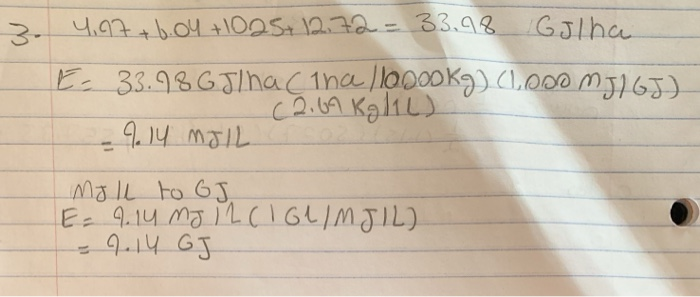 3. 4.97 + 6.04 + 1025 + 12.72 = 33.98 GJ/ha
E = 33.98 GJ/ha (1ha/10000Kg) (1,000 MJ/GJ)
(2.69 Kg/1L)
= 9.14 MJ/L
MJ/L to GJ
E = 9.14 MJ/L (1GL/MJ/L)
= 9.14 GJ